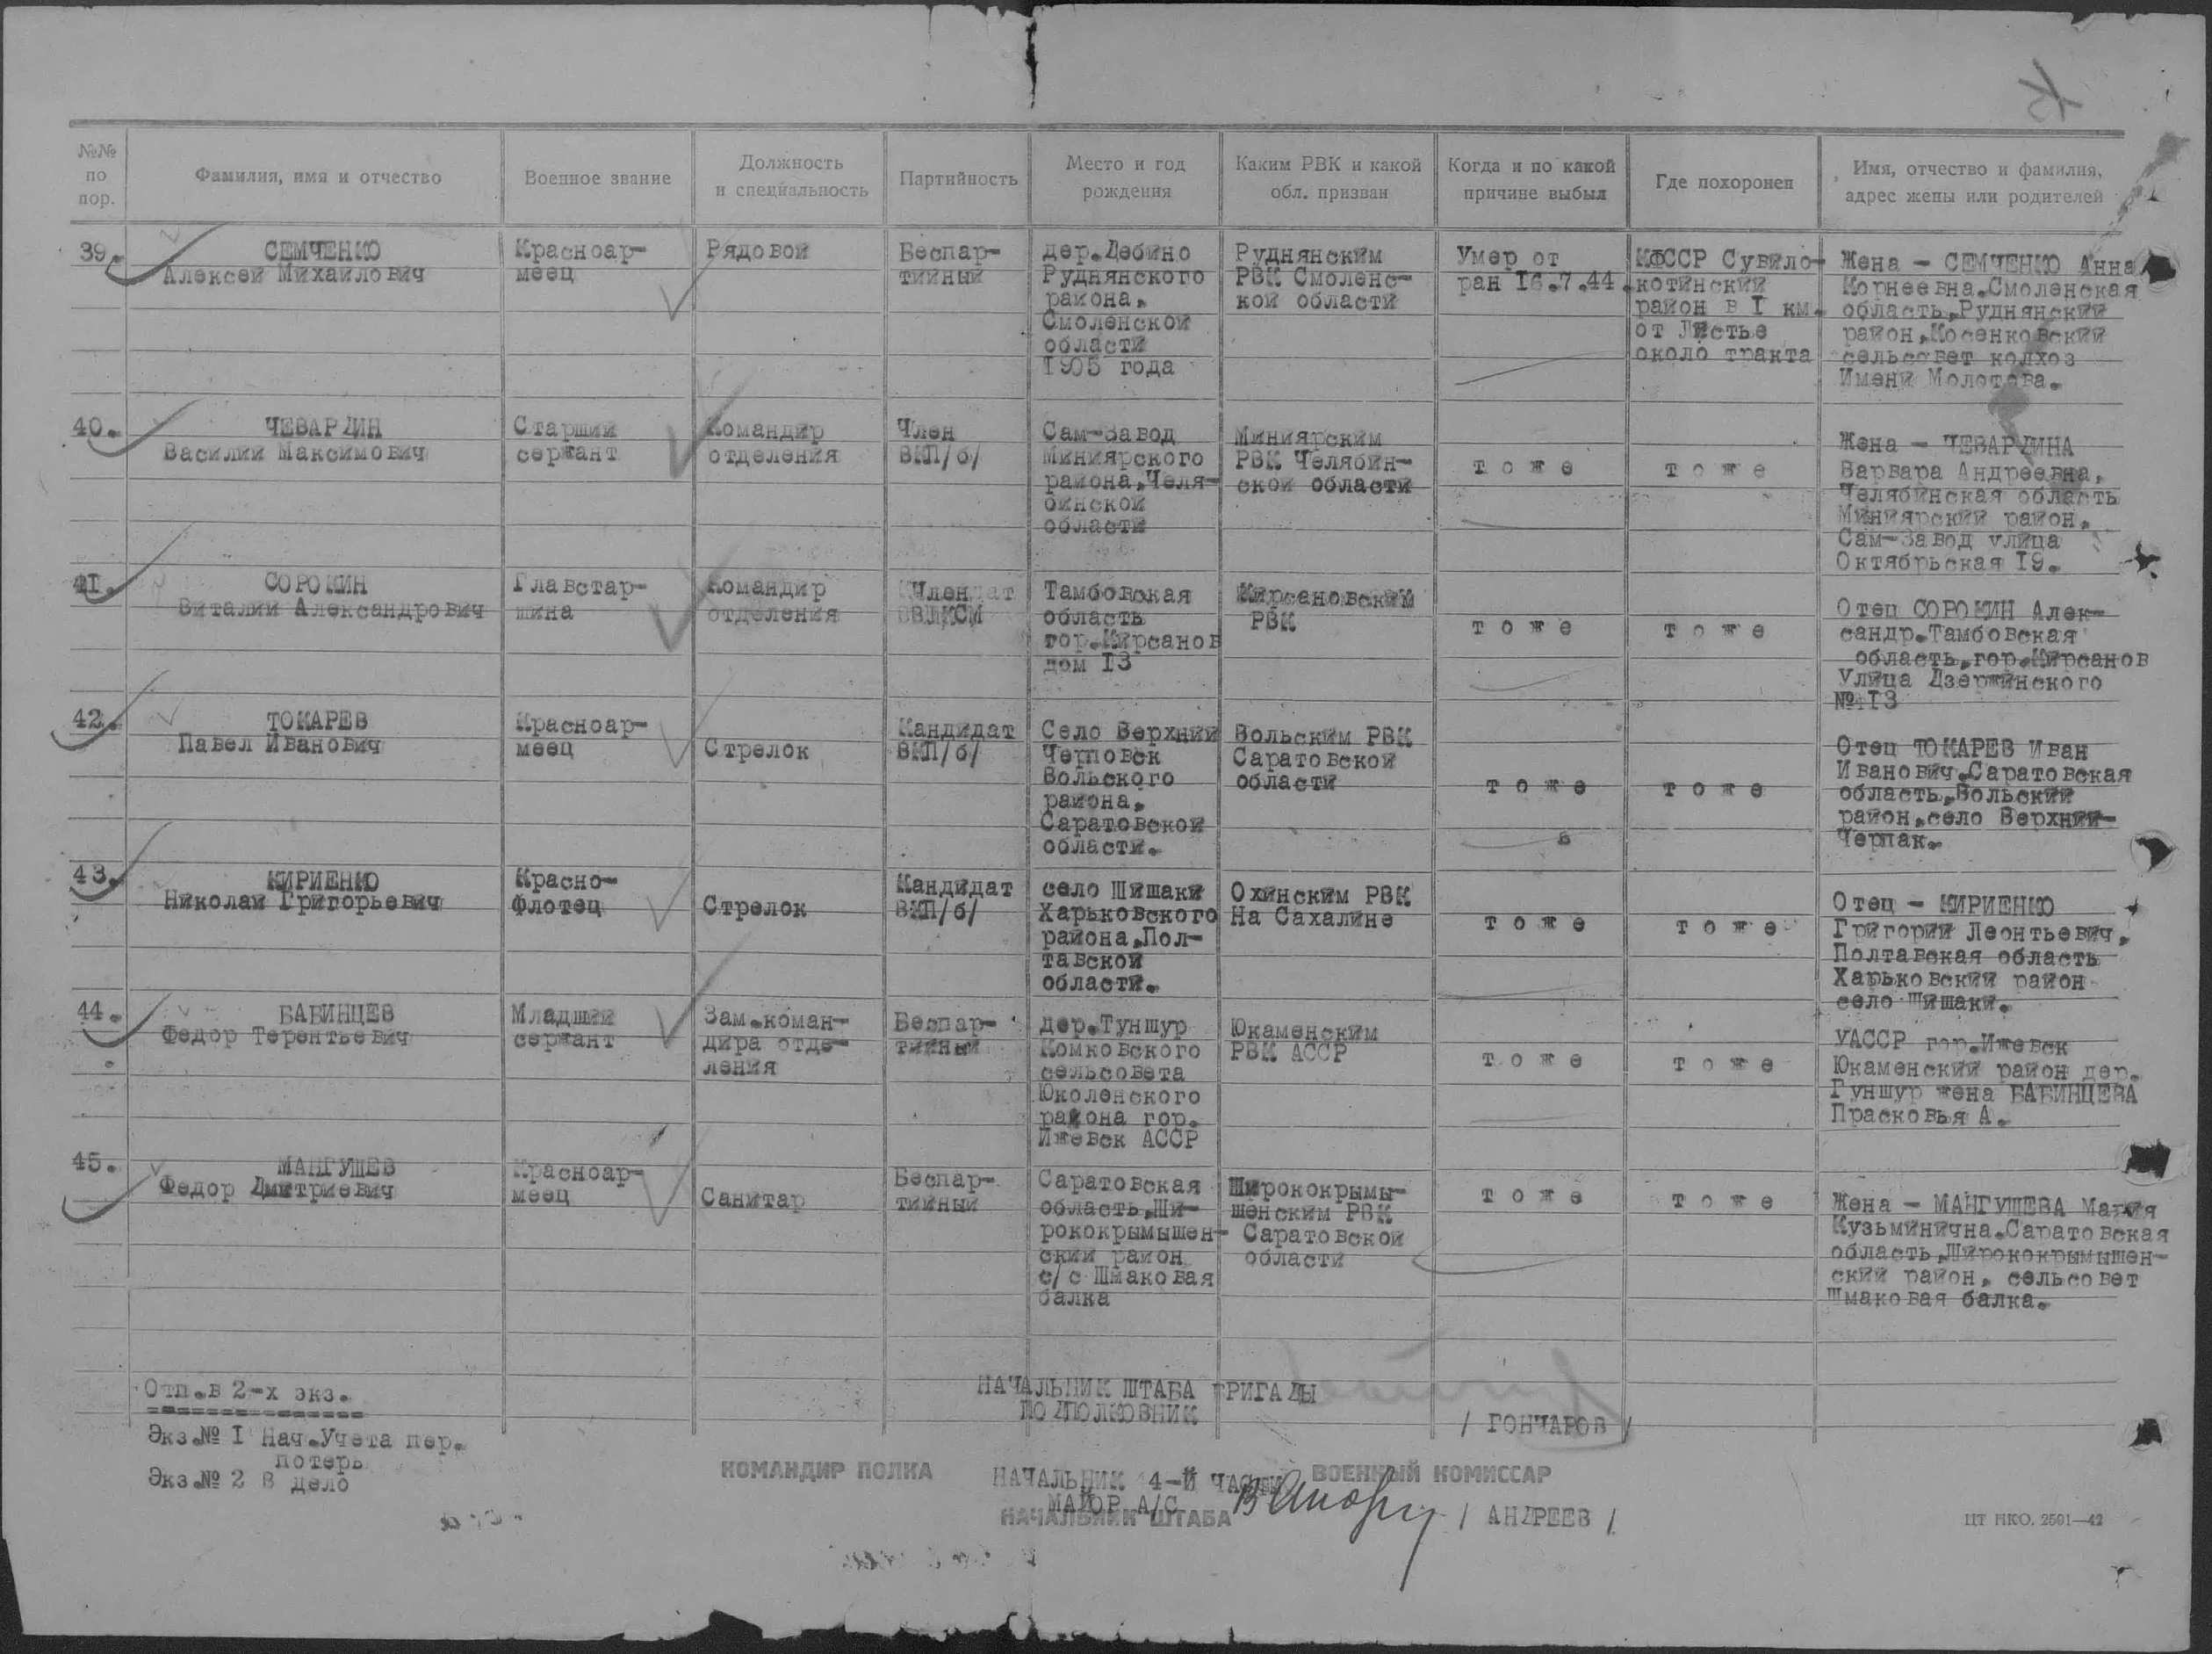 №№ по пор.
Фамилия, имя и отчество
Военное звание
Должность и специальность
Партийность
Место и год рождения
Каким РВК и какой обл. призван
Когда и по какой причине выбыл
Где похоронен
Имя, отчество и фамилия, адрес жены или родителей
39.
СЕМЧЕНКО
Алексей Михайлович
Красноар-
меец
Рядовой
Беспар-
тийный
дер.Дебино
Руднянского
района,
Смоленской
области
1905 года
Руднянским
РВК Смоленс-
кой области
Умер от
ран 16.7.44.
КФССР Сувило-
котинский
район в I км.
от Листье
около тракта
Жена - СЕМЧЕНКО Анна
Корнеевна.Смоленская
область,Руднянский
район,Косенковский
сельсовет колхоз
Имени Молотова.
40.
ЧЕВАРДИН
Василий Максимович
Старший
сержант
Командир
отделения
Член
ВКП/б/
Сам-Завод
Миниярского
района,Челя-
бинской
области
Миниярским
РВК Челябин-
ской области
т о ж е
т о ж е
Жена - ЧЕВАРДИНА
Варвара Андреевна,
Челябинская область
Миниярский район,
Сам-Завод улица
Октябрьская 19.
41.
СОРОКИН
Виталий Александрович
Главстар-
шина
Командир
отделения
Член
ВЛКСМ
Тамбовская
область
гор.Кирсанов
дом 13
Кирсановским
РВК
т о ж е
т о ж е
Отец СОРОКИН Алек-
сандр.Тамбовская
область,гор.Кирсанов
Улица Дзержинского
№ 13
42.
ТОКАРЕВ
Павел Иванович
Красноар-
меец
Стрелок
Кандидат
ВКП/б/
Село Верхний
Черповск
Вольского
района,
Саратовской
области.
Вольским РВК
Саратовской
области
т о ж е
т о ж е
Отец ТОКАРЕВ Иван
Иванович.Саратовская
область,Вольский
район,село Верхний-
Черпак.
43.
КИРИЕНКО
Николай Григорьевич
Красно-
флотец
Стрелок
Кандидат
ВКП/б/
село Шишаки
Харьковского
района,Пол-
тавской
области.
Охинским РВК
На Сахалине
т о ж е
т о ж е
Отец - КИРИЕНКО
Григорий Леонтьевич,
Полтавская область
Харьковский район
село Шишаки.
44.
БАБИНЦЕВ
Федор Терентьевич
Младший
сержант
Зам.коман-
дира отде-
ления
Беспар-
тийный
дер.Туншур
Комковского
сельсовета
Юколенского
района гор.
Ижевск АССР
Юкаменским
РВК АССР
т о ж е
т о ж е
УАССР гор.Ижевск
Юкаменский район дер.
Гуншур жена БАБИНЦЕВА
Прасковья А.
45.
МАНГУШЕВ
Федор Дмитриевич
Красноар-
меец
Санитар
Беспар-
тийный
Саратовская
область,Ши-
рококрымышен-
ский район
с/с Шмаковая
балка
Ширококрымы-
шенским РВК
Саратовской
области
т о ж е
т о ж е
Жена - МАНГУШЕВА Мария
Кузьминична.Саратовская
область,Ширококрымышен-
ский район, сельсовет
Шмаковая балка.
Отп.в 2-х экз.
================
Экз.№ I Нач.Учета пер.
потерь
Экз.№ 2 В дело
НАЧАЛЬНИК ШТАБА БРИГАДЫ
ПОДПОЛКОВНИК
/ ГОНЧАРОВ /
КОМАНДИР ПОЛКА
ВОЕННЫЙ КОМИССАР
НАЧАЛЬНИК 4-Й ЧАСТИ
МАЙОР А/С
/ АНДРЕЕВ /
НАЧАЛЬНИК ШТАБА
ЦТ НКО. 2591—42